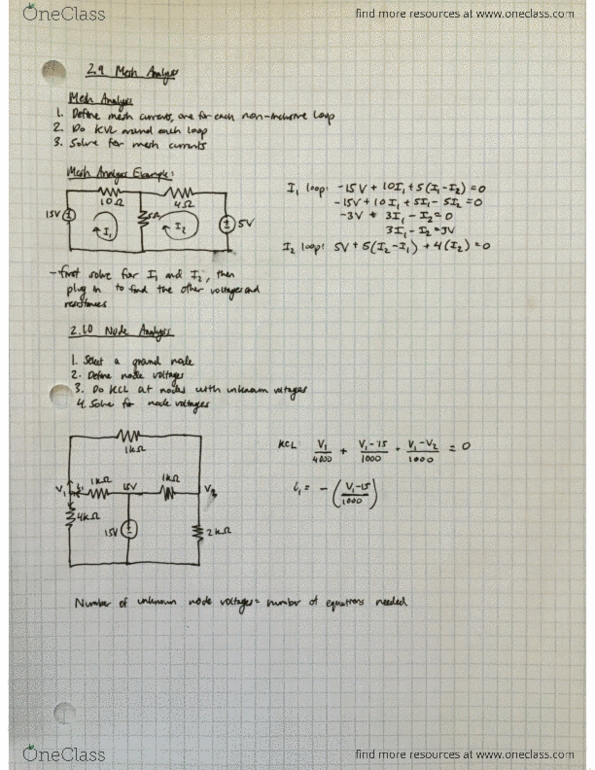 OneClass
find more resources at www.oneclass.com
2.9 Mesh Analysis
Mesh Analysis
1. Define mesh currents, one for each non-inclusive loop
2. Do KVL around each loop
3. Solve for mesh currents
Mesh Analysis Example:
10Ω 4Ω
15V 5Ω 5V
I₁ I₂
I₁ loop: -15V + 10I₁ + 5(I₁-I₂) = 0
-15V + 10I₁ + 5I₁ - 5I₂ = 0
-3V + 3I₁ - I₂ = 0
3I₁ - I₂ = 3V
I₂ loop: 5V + 5(I₂-I₁) + 4(I₂) = 0
-first solve for I₁ and I₂, then
plug in to find the other voltages and
resistances
2.10 Node Analysis
1. Select a ground node
2. Define node voltages
3. Do KCL at nodes with unknown voltages
4. Solve for node voltages
1kΩ
V₁ i₁ 1kΩ 15V 1kΩ V₂
4kΩ 15V 2kΩ
KCL: V₁/4000 + V₁-15/1000 + V₁-V₂/1000 = 0
i₁ = -(V₁-15/1000)
Number of unknown node voltages = number of equations needed
OneClass
find more resources at www.oneclass.com